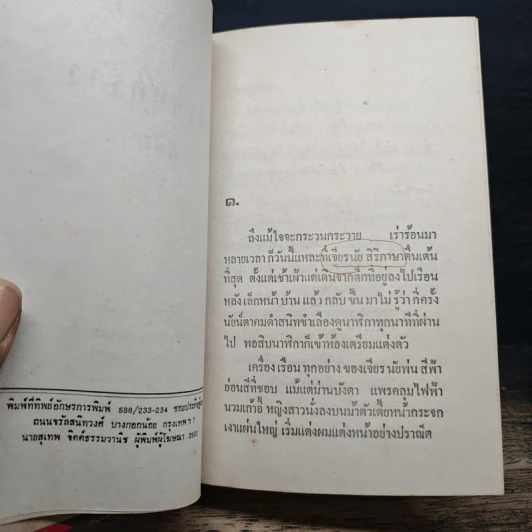 พิมพ์ที่ทิพย์อักษรการพิมพ์ 588/233-234
ถนนจรัลสนิทวงศ์ บางกอกน้อย กรุงเทพฯ
นายสุเทพ จิตต์ธรรมวานิช ผู้พิมพ์ผู้โฆษณา
๑.
ถึงแม้ใจจะกระวนกระวาย เร่าร้อนมา
หลายเวลา ก็วันนี้แหละที่เจียรนัย สิริภาษาตื่นเต้น
ที่สุด ตั้งแต่เช้าเฝ้าแต่เดินจากตึกที่อยู่ลงไปเรือน
หลังเล็กหน้าบ้าน แล้วกลับขึ้นมาไม่รู้ว่ากี่ครั้ง
นัยน์ตาคมดำสนิทชำเลืองดูนาฬิกาทุกนาทีที่ผ่าน
ไป พอสิบนาฬิกาก็เข้าห้องเตรียมแต่งตัว
เครื่องเรือนทุกอย่างของเจียรนัยพ่นสีฟ้า
อ่อนสีที่ชอบ แม้แต่ม่านบังตา แพรคลุมไฟฟ้า
นวมเก้าอี้ หญิงสาวนั่งลงบนม้าตัวเตี้ยหน้ากระจก
เงาแผ่นใหญ่ เริ่มแต่งผมแต่งหน้าอย่างปราณีต